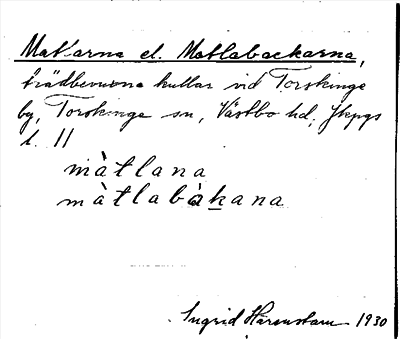 Matlarna el. Matlabackarna,
trädbevuxna kullar vid Torskinge
by, Torskinge sn, Västbo hd, Jkpgs
l. 11
màtlana
màtlabàkana
Ingrid Härenstam 1930